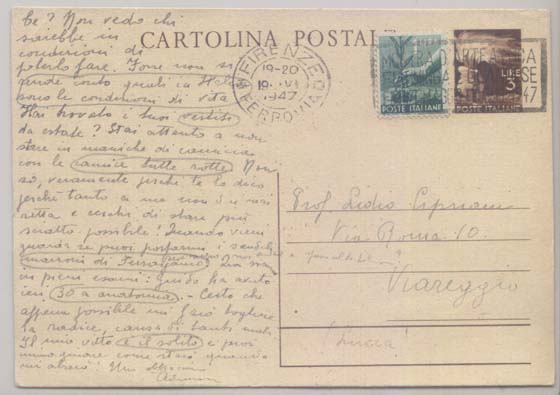 te? Non vedo chi
sarebbe in
condizioni di
poterlo fare. Forse non si
rende conto quali in
sono le condizioni di vita
Hai trovato i tuoi vestiti
da estate? Stai attento a non
stare in maniche di camicia
con le camicie tutte rotte. Non
so, veramente perché te lo dico
perché tanto a me non dai mai
retta e cerchi di stare più
scritto possibile! Quando vieni
guarda se puoi portarmi i sandali
marroni di Ferragamo
in pieni esami: guido ha avuto
ieri 30 a anatomia. - Certo che
appena possibile mi farò togliere
la radice, causa di tanti mali.
Il mio vitto è il solito e puoi
immaginare come starò quando
mi alzerò! Un
CARTOLINA POSTALE
FIRENZE
19-20
19. VI
1947
FERROVIA
POSTE ITALIANE
LIRE
3
POSTE ITALIANE
47
Prof. Lidio Cipriani
Via Roma 10.
Viareggio
(Lucca)